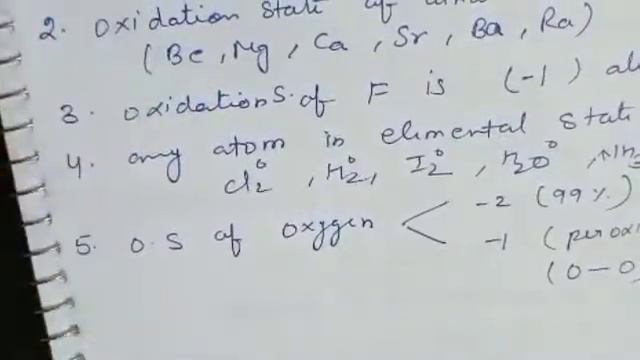 2. oxidation state of
(Be, Mg, Ca, Sr, Ba, Ra)
3. oxidation S. of F is (-1)
4. any atom in elimental state
Cl₂⁰, H₂⁰, I₂⁰, H₂O⁰, NH₃
5. O.S of oxygen < -2 (99%)
-1 (peroxi
(O-O